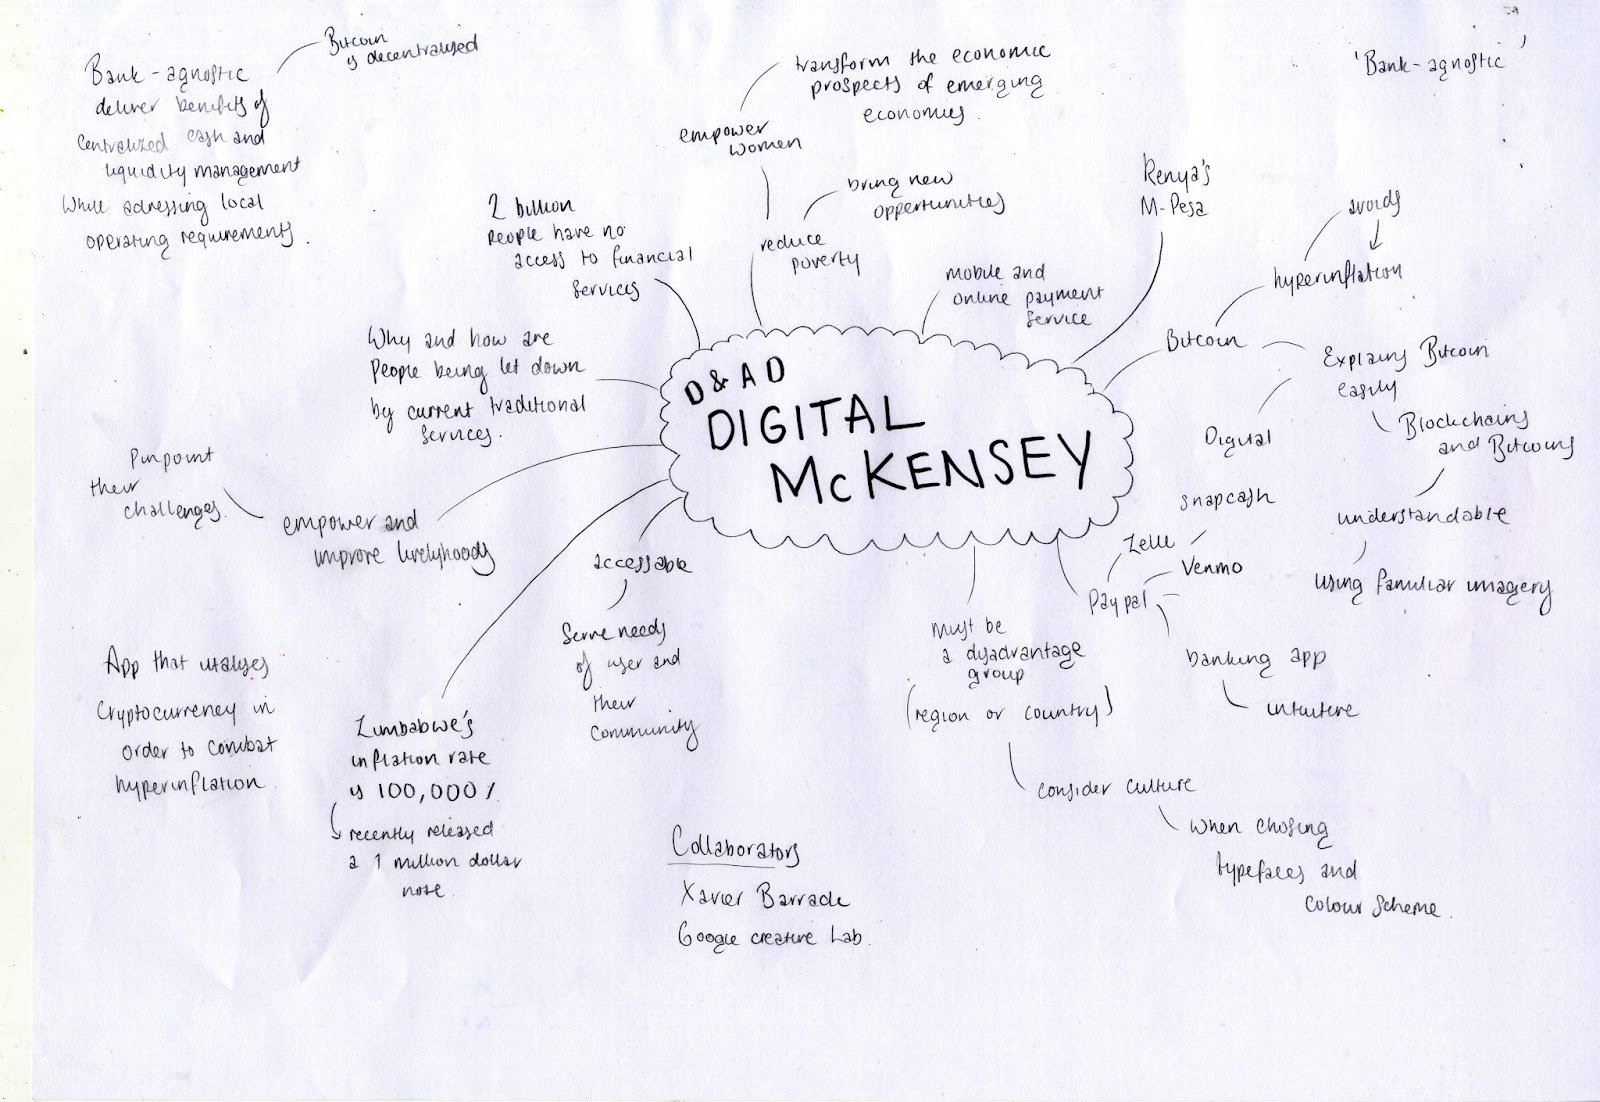 Bitcoin
is decentralised
Bank-agnostic
deliver benefits of
centralized cash and
liquidity management
While adressing local
operating requirements.
transform the economic
prospects of emerging
economies.
empower
women
'Bank-agnostic'
2 billion
people have no
access to financial
services
bring new
opportunities
reduce
poverty
mobile and
online payment
service
Kenya's
M-Pesa
avoids
hyperinflation
Bitcoin
Explains Bitcoin
easily
Digital
Blockchains
and Bitcoins
understandable
using familiar imagery
Why and how are
people being let down
by current traditional
services.
D&AD
DIGITAL
McKENSEY
Pinpoint
their
challenges.
empower and
improve livelyhoods
accessable
Serve needs
of user and
their
community
snapcash
Zelle
Venmo
Paypal
banking app
intuitive
must be
a disadvantage
group
(region or country)
consider culture
when chosing
typefaces and
colour scheme.
App that utalyses
Cryptocurrency in
order to combat
hyperinflation.
Zimbabwe's
inflation rate
is 100,000%
recently released
a 1 million dollar
note.
Collaborators
Xavier Barrade
Google creative Lab.